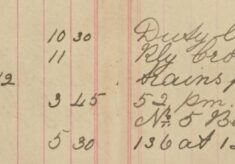 10 30 Duty
11 Rly
12 trains
3 45 52 pm.
No 5 B
5 30 136 at 12